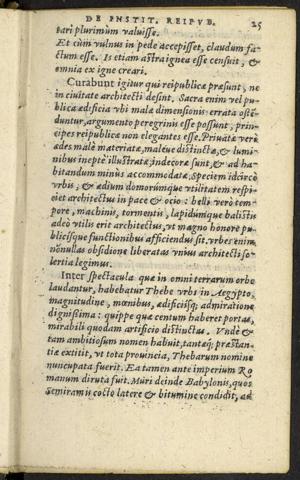 DE INSTIT. REIPVB. 25
tari plurimùm valuisse.
Et cùm vulnus in pede accepisset, claudum fa-
ctum esse. Is etiam astra ignea esse censuit, &
omnia ex igne creari.
Curabunt igitur qui reipublicæ præsunt, ne
in ciuitate architecti desint. Sacra enim vel pu
blica ædificia vbi malè dimensionis errata ostē
duntur, argumento peregrinis esse possunt, prin-
cipes reipublicæ non elegantes esse. Priuatæ verò
ædes malè materiatæ, maléue distinctæ, & lumi
nibus ineptè illustratæ, indecoræ sunt, & ad ha
bitandum minùs accommodatæ. Speciem idcircò
vrbis, & ædium domorúmque vtilitatem respi-
ciet architectus in pace & ocio: belli verò tem-
pore, machinis, tormentis, lapidúmque balistis
adeò vtilis erit architectus, vt magno honore pu
blicísque functionibus afficiendus sit. vrbes enim
nōnullas obsidione liberatas vnius architecti so-
lertia legimus.
Inter spectacula quæ in omni terrarum orbe
laudantur, habebatur Thebe vrbs in Aegypto,
magnitudine, mœnibus, ædificiísq; admiratione
dignissima: quippe quæ centum haberet portas,
mirabili quodam artificio distinctas. Vnde &
tam ambitiosum nomen habuit, tantaq; præstan-
tiæ extitit, vt tota prouncia, Thebarum nomine
nuncupata fuerit. Ea tamen ante imperium Ro
manum diruta fuit. Muri deinde Babylonis, quos
Semiramis cocto latere & bitumine condidit, ad